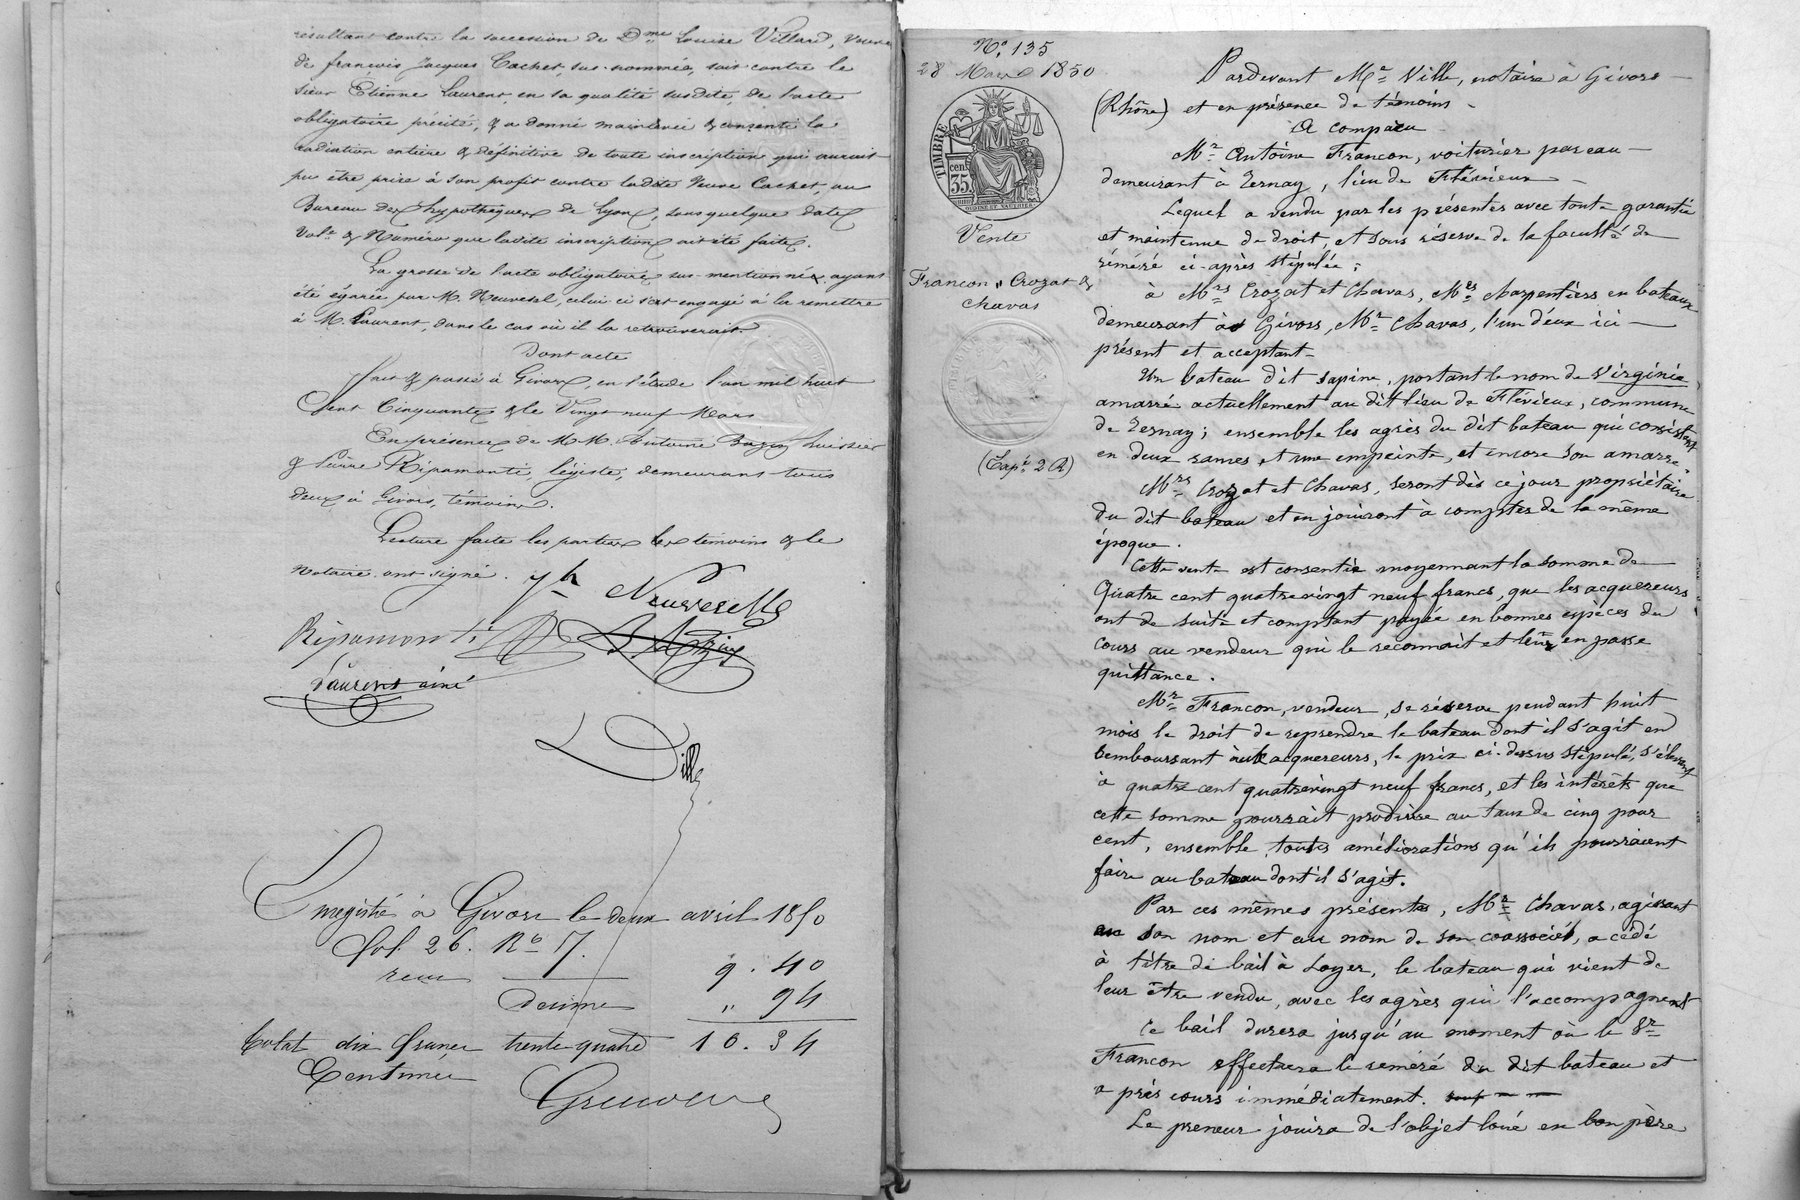 résultant contre la succession de Dme Louise Villard, veuve
de françois Jacques Cachet, sus-nommée, soit contre le
sieur Étienne Laurent, en sa qualité susdite, de l'acte
obligatoire précité, & a donné mainlevée & consenti la
radiation entière & définitive de toute inscription qui aurait
pu être prise à son profit contre ladite Veuve Cachet, au
Bureau des hypothèques de Lyon, sous quelque date,
Vol. & Numéro que ladite inscription ait été faite.
La grosse de l'acte obligatoire sus-mentionnée ayant
été égarée par M. Neuvesel, celui ci s'est engagé à la remettre
à M. Laurent, dans le cas où il la retrouverait.
Dont acte
fait & passé à Givors, en l'étude l'an mil huit
Cent Cinquante & le Vingt neuf Mars
En présence de M.M. Antoine Bazin huissier
& Pierre Ripamonti, légiste, demeurans tous
deux à Givors, témoins.
Lecture faite les parties les témoins & le
Notaire ont signé.
Neuveselle
Ripamonti
Laurent ainé
Ville
Enregistré à Givors le deux avril 1850
fol 26. No 7.
reçu 9. 40
Décime " 94
Total dix francs trente quatre 10. 34
Centimes
No. 135
28 Mars 1850
TIMBRE
35 cen.
Vente
Francon à Crozat &
Chavas
(Expé. 2 R)
Pardevant Me. Ville, notaire à Givors
(Rhône) et en présence de témoins
A comparu
Mr. Antoine Francon, voiturier par eau
demeurant à Ternay, lieu de Flévieux
Lequel a vendu par les présentes avec toute garantie
et maintenue de droit, et sous réserve de la faculté de
réméré ci-après stipulée ;
à Mrs Crozat et Chavas, Mes Charpentiers en bateaux
demeurant à Givors, Mr. Chavas, l'un d'eux ici
présent et acceptant
Un bateau dit sapine, portant le nom de Virginie,
amarré actuellement au dit lieu de Flévieux, commune
de Ternay ; ensemble les agrès du dit bateau qui consistent
en deux rames et une empeinte, et encore son amarre.
Mrs Crozat et Chavas, seront dès ce jour propriétaire
du dit bateau et en jouiront à compter de la même
époque.
Cette vente est consentie moyennant la somme de
Quatre cent quatrevingt neuf francs, que les acquereurs
ont de suite et comptant payée en bonnes espèces du
cours au vendeur qui le reconnait et leur en passe
quittance.
Mr. Francon, vendeur, se réserve pendant huit
mois le droit de reprendre le bateau dont il s'agit en
remboursant aux acquereurs, le prix ci-dessus stipulé, s'élevant
à quatre cent quatrevingt neuf francs, et les intérêts que
cette somme pourrait produire au taux de cinq pour
cent, ensemble toutes améliorations qu'ils pourraient
faire au bateau dont il s'agit.
Par ces mêmes présentes, Mr. Chavas, agissant
en son nom et au nom de son coassocié, a cédé
à titre de bail à Loyer, le bateau qui vient de
leur être vendu, avec les agrès qui l'accompagnent
Ce bail durera jusqu'au moment où le Sr.
Francon effectuera le réméré du dit bateau et
a pris cours immédiatement.
Le preneur jouira de l'objet loué en bon père